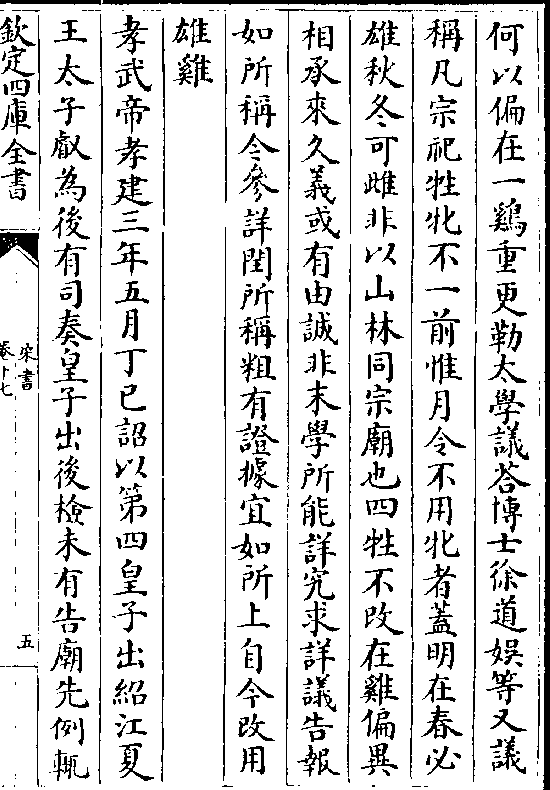 何以偏在一鷄重更勒太學議荅博士徐道娱等又議
稱凡宗祀牲牝不一前惟月令不用牝者蓋明在春必
雄秋冬可雌非以山林同宗廟也四牲不改在雞偏異
相承來久義或有由誠非末學所能詳究求詳議告報
如所稱令參詳閏所稱粗有證據宜如所上自今改用
雄雞
孝武帝孝建三年五月丁巳詔以第四皇子出紹江夏
王太子叡為後有司奏皇子出後檢未有告廟先例輒
欽定四庫全書
宋書
卷十七
五